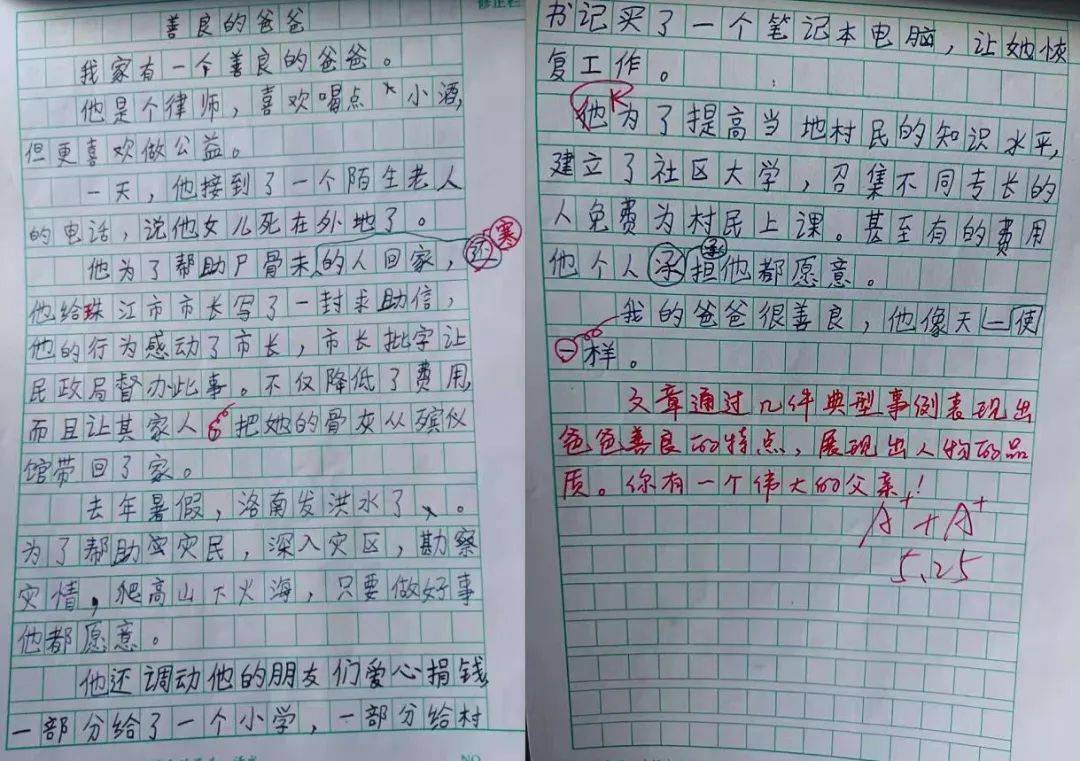 善良的爸爸
我家有一个善良的爸爸。
他是个律师，喜欢喝点小酒，
但更喜欢做公益。
一天，他接到了一个陌生老人
的电话，说他女儿死在外地了。
他为了帮助尸骨未寒的人回家，还
他给珠江市市长写了一封求助信，
他的行为感动了市长，市长批字让
民政局督办此事。不仅降低了费用，
而且让其家人把她的骨灰从殡仪
馆带回了家。
去年暑假，洛南发洪水了。
为了帮助灾民，深入灾区，勘察
灾情，爬高山下火海，只要做好事
他都愿意。
他还调动他的朋友们爱心捐钱
一部分给了一个小学，一部分给村
NO
修正栏
书记买了一个笔记本电脑，让她恢
复工作。
他为了提高当地村民的知识水平，
建立了社区大学，召集不同专长的
人免费为村民上课。甚至有的费用
他个人承担他都愿意。
我的爸爸很善良，他像天使
一样。
文章通过几件典型事例表现出
爸爸善良的特点，展现出人物的品
质。你有一个伟大的父亲！
A⁺+A⁺
5.25